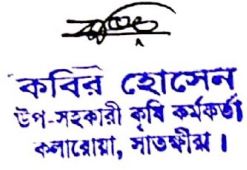 কবির হোসেন
উপ-সহকারী কৃষি কর্মকর্তা
কলারোয়া, সাতক্ষীরা ।